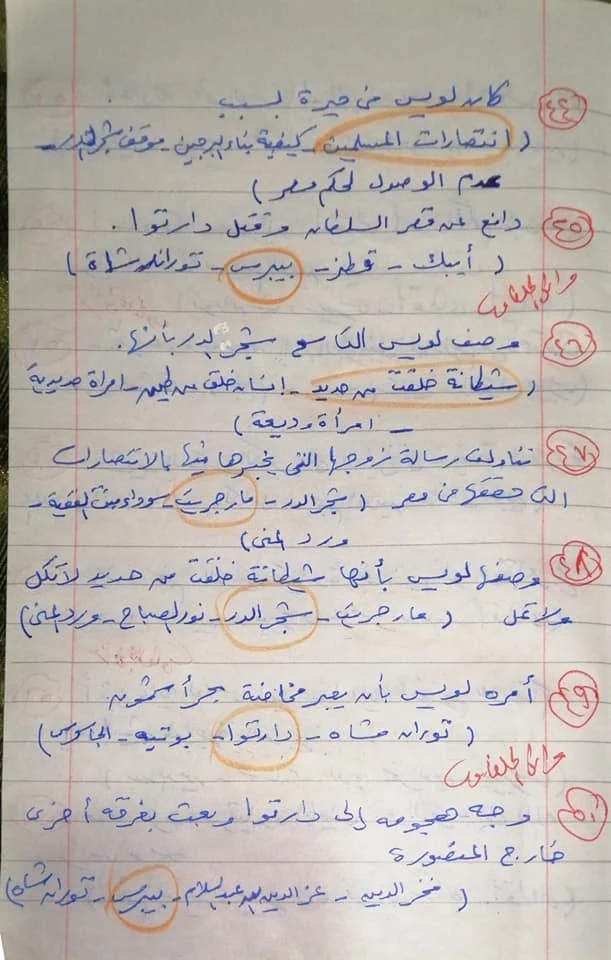 ٤٤ كان لويس في حيرة بسبب .
( انتصارات المسلمين - كيفية بناء البرجين - موقف شجر الدر -
عدم الوصول لحكم مصر )
٤٥ دافع عن قصر السلطان وقتل دارتوا .
( أيبك - قطز - بيبرس - توران شاة )
٤٦ وصف لويس التاسع شجر الدر بأنها .
( شيطانة خلقت من حديد - انسان خلق من طين - امرأة حديدية
- امرأة وديعة )
٤٧ تناولت رسالة زوجها التي يخبرها فيها بالانتصارات
التي حققها في مصر ( شجر الدر - مارجريت - سوداء بنت الفقيه -
ورد المنى )
٤٨ وصفها لويس بأنها شيطانة خلقت من حديد لا تكل
ولا تمل ( مارجريت - شجر الدر - نور الصباح - ورد المنى )
٤٩ أمره لويس بأن يعبر مخاضة بحر أشمون
( توران شاه - دارتوا - بوتيه - الجاسوس )
٥٠ وجه هجومه إلى دارتوا وبعث بفرقه أخرى
خارج المنصورة
( فخر الدين - عز الدين بن عبد السلام - بيبرس - توران شاه )